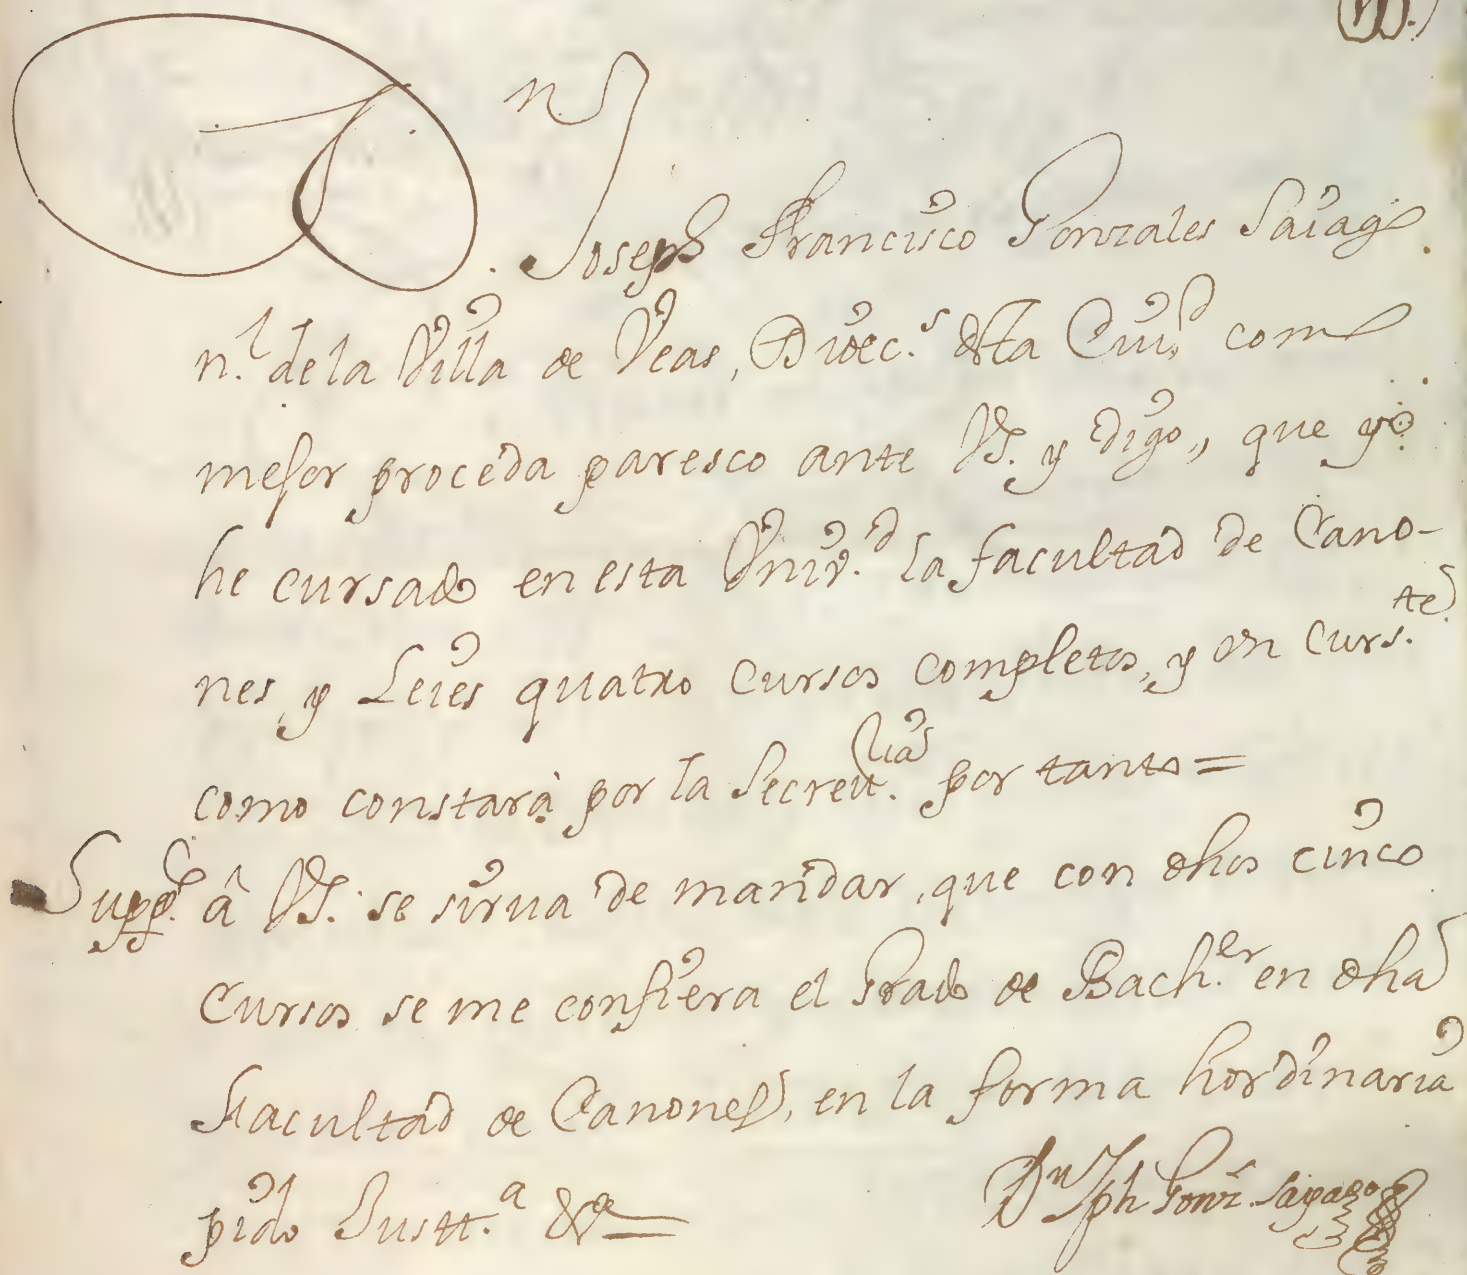 Dn Joseph Francisco Gonzales Saiago
n.l de la Villa de Veas, Dióec.s desta Ciu.d como
mejor proceda paresco ante VS. y digo, que yo
he cursado en esta Vniv.d la facultad de Cano-
nes, y Leies quatro cursos completos, y en curs.te
como constarà por la Secrett.ria por tanto =
Supp.co â VS. se sirva de mandar, que con dhos cinco
Cursos se me confiera el Grado de Bach.er en dha
Facultad de Canones, en la forma hordinaria
pido Justt.a &a
Dn Jph Gonz.s Sayago